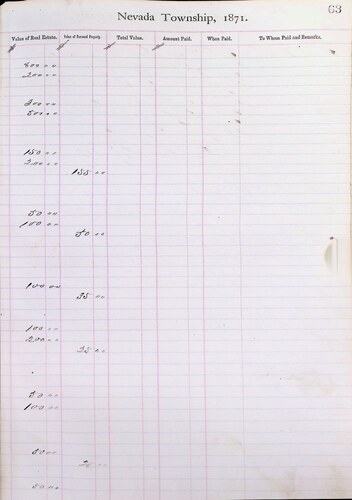 63
Nevada Township, 1871.
Value of Real Estate. Value of Personal Property. Total Value. Amount Paid. When Paid. To Whom Paid and Remarks.
200 00
150 00
200 00
155 00
50 00
100 00
50 00
100 00
35 00
100 00
200 00
25 00
50 00
100 00
50 00
50 00